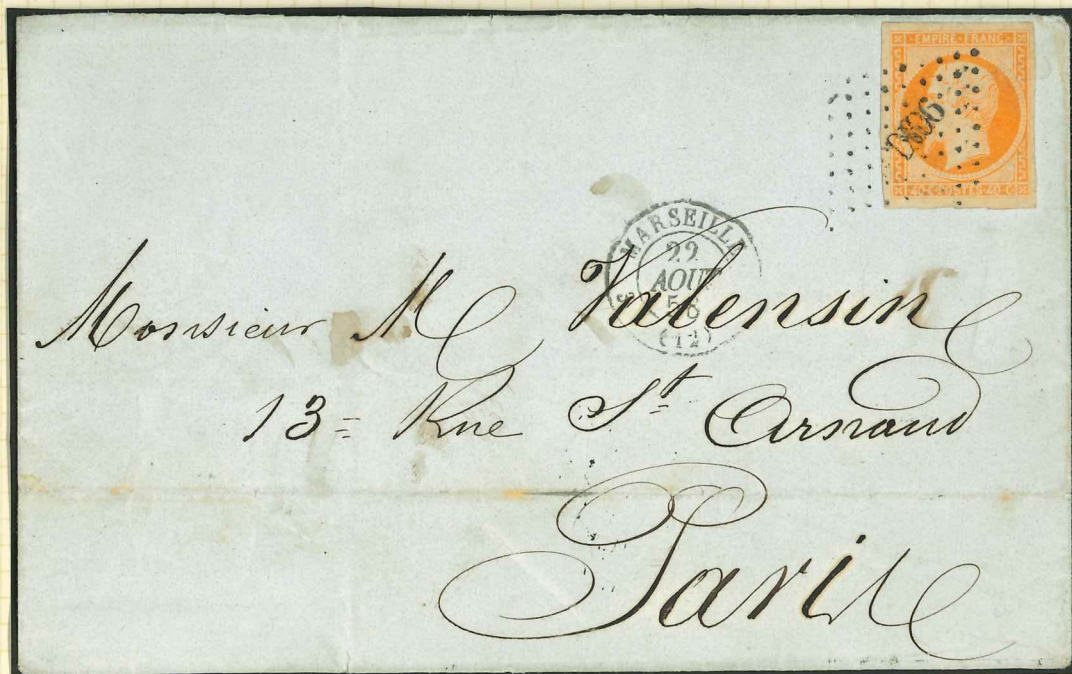 EMPIRE · FRANC ·
40 · C · POSTES · 40 · C
MARSEILLE
22
AOUT
(12)
Monsieur M Valensin
13 = Rue St Arnaud
Paris